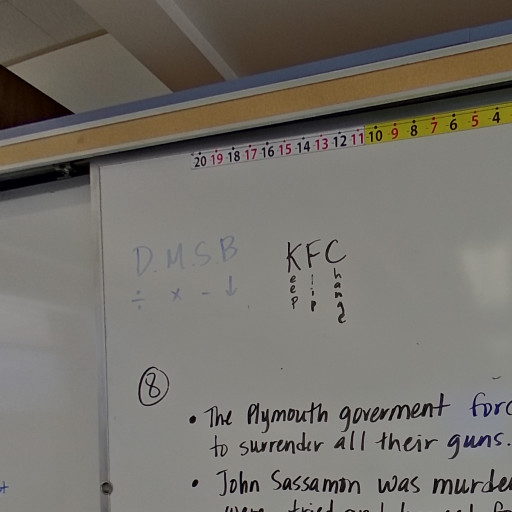 20 19 18 17 16 15 14 13 12 11 10 9 8 7 6 5 4
D.M.S.B
÷ × - ↓
KFC
eep
lip
hange
8
• The Plymouth goverment
to surrender all their guns.
• John Sassamon was